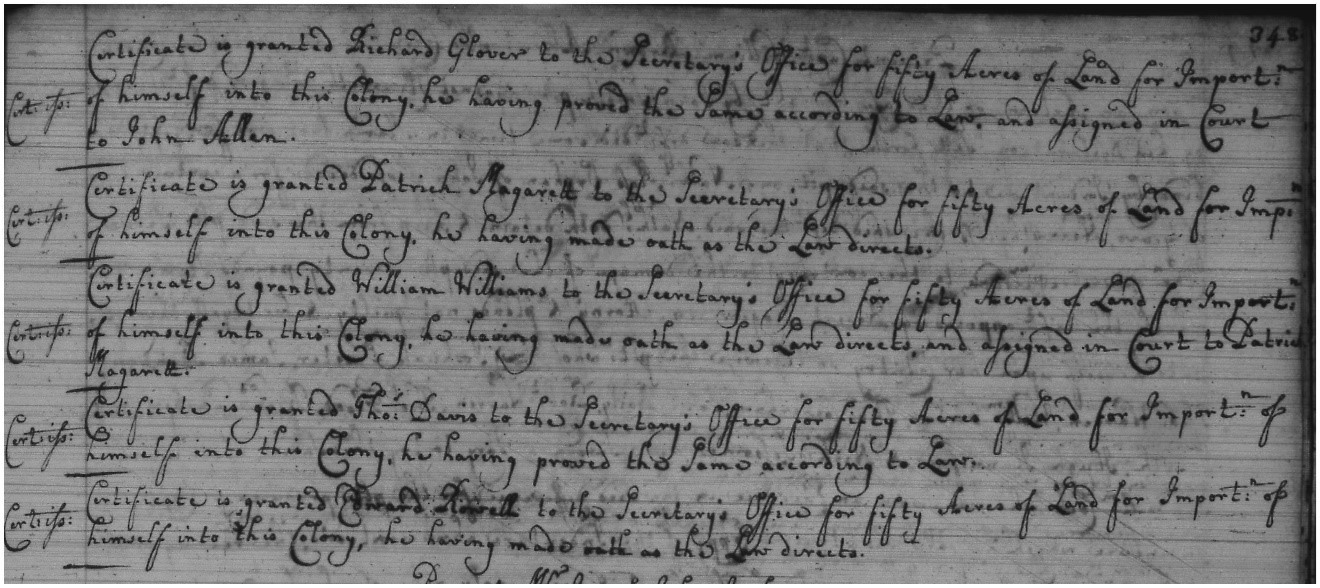 348
Certificate is granted Richard Glover to the Secretary's Office for fifty Acres of Land for Import:n
Cert: iss: of himself into this Colony, he having proved the Same according to Law, and assigned in Court
to John Allen.
Certificate is granted Patrick Magarett to the Secretary's Office for fifty Acres of Land for Imp:n
Cert: iss: of himself into this Colony, he having made oath as the Law directs.
Certificate is granted William Williams to the Secretary's Office for fifty Acres of Land for Import:n
Cert: iss: of himself into this Colony, he having made oath as the Law directs, and assigned in Court to Patrick
Magarett.
Certificate is granted Tho:s Davis to the Secretary's Office for fifty Acres of Land for Import:n of
Cert: iss: himself into this Colony, he having proved the Same according to Law.
Certificate is granted Edward Howell to the Secretary's Office for fifty Acres of Land for Import:n of
Cert: iss: himself into this Colony, he having made oath as the Law directs.